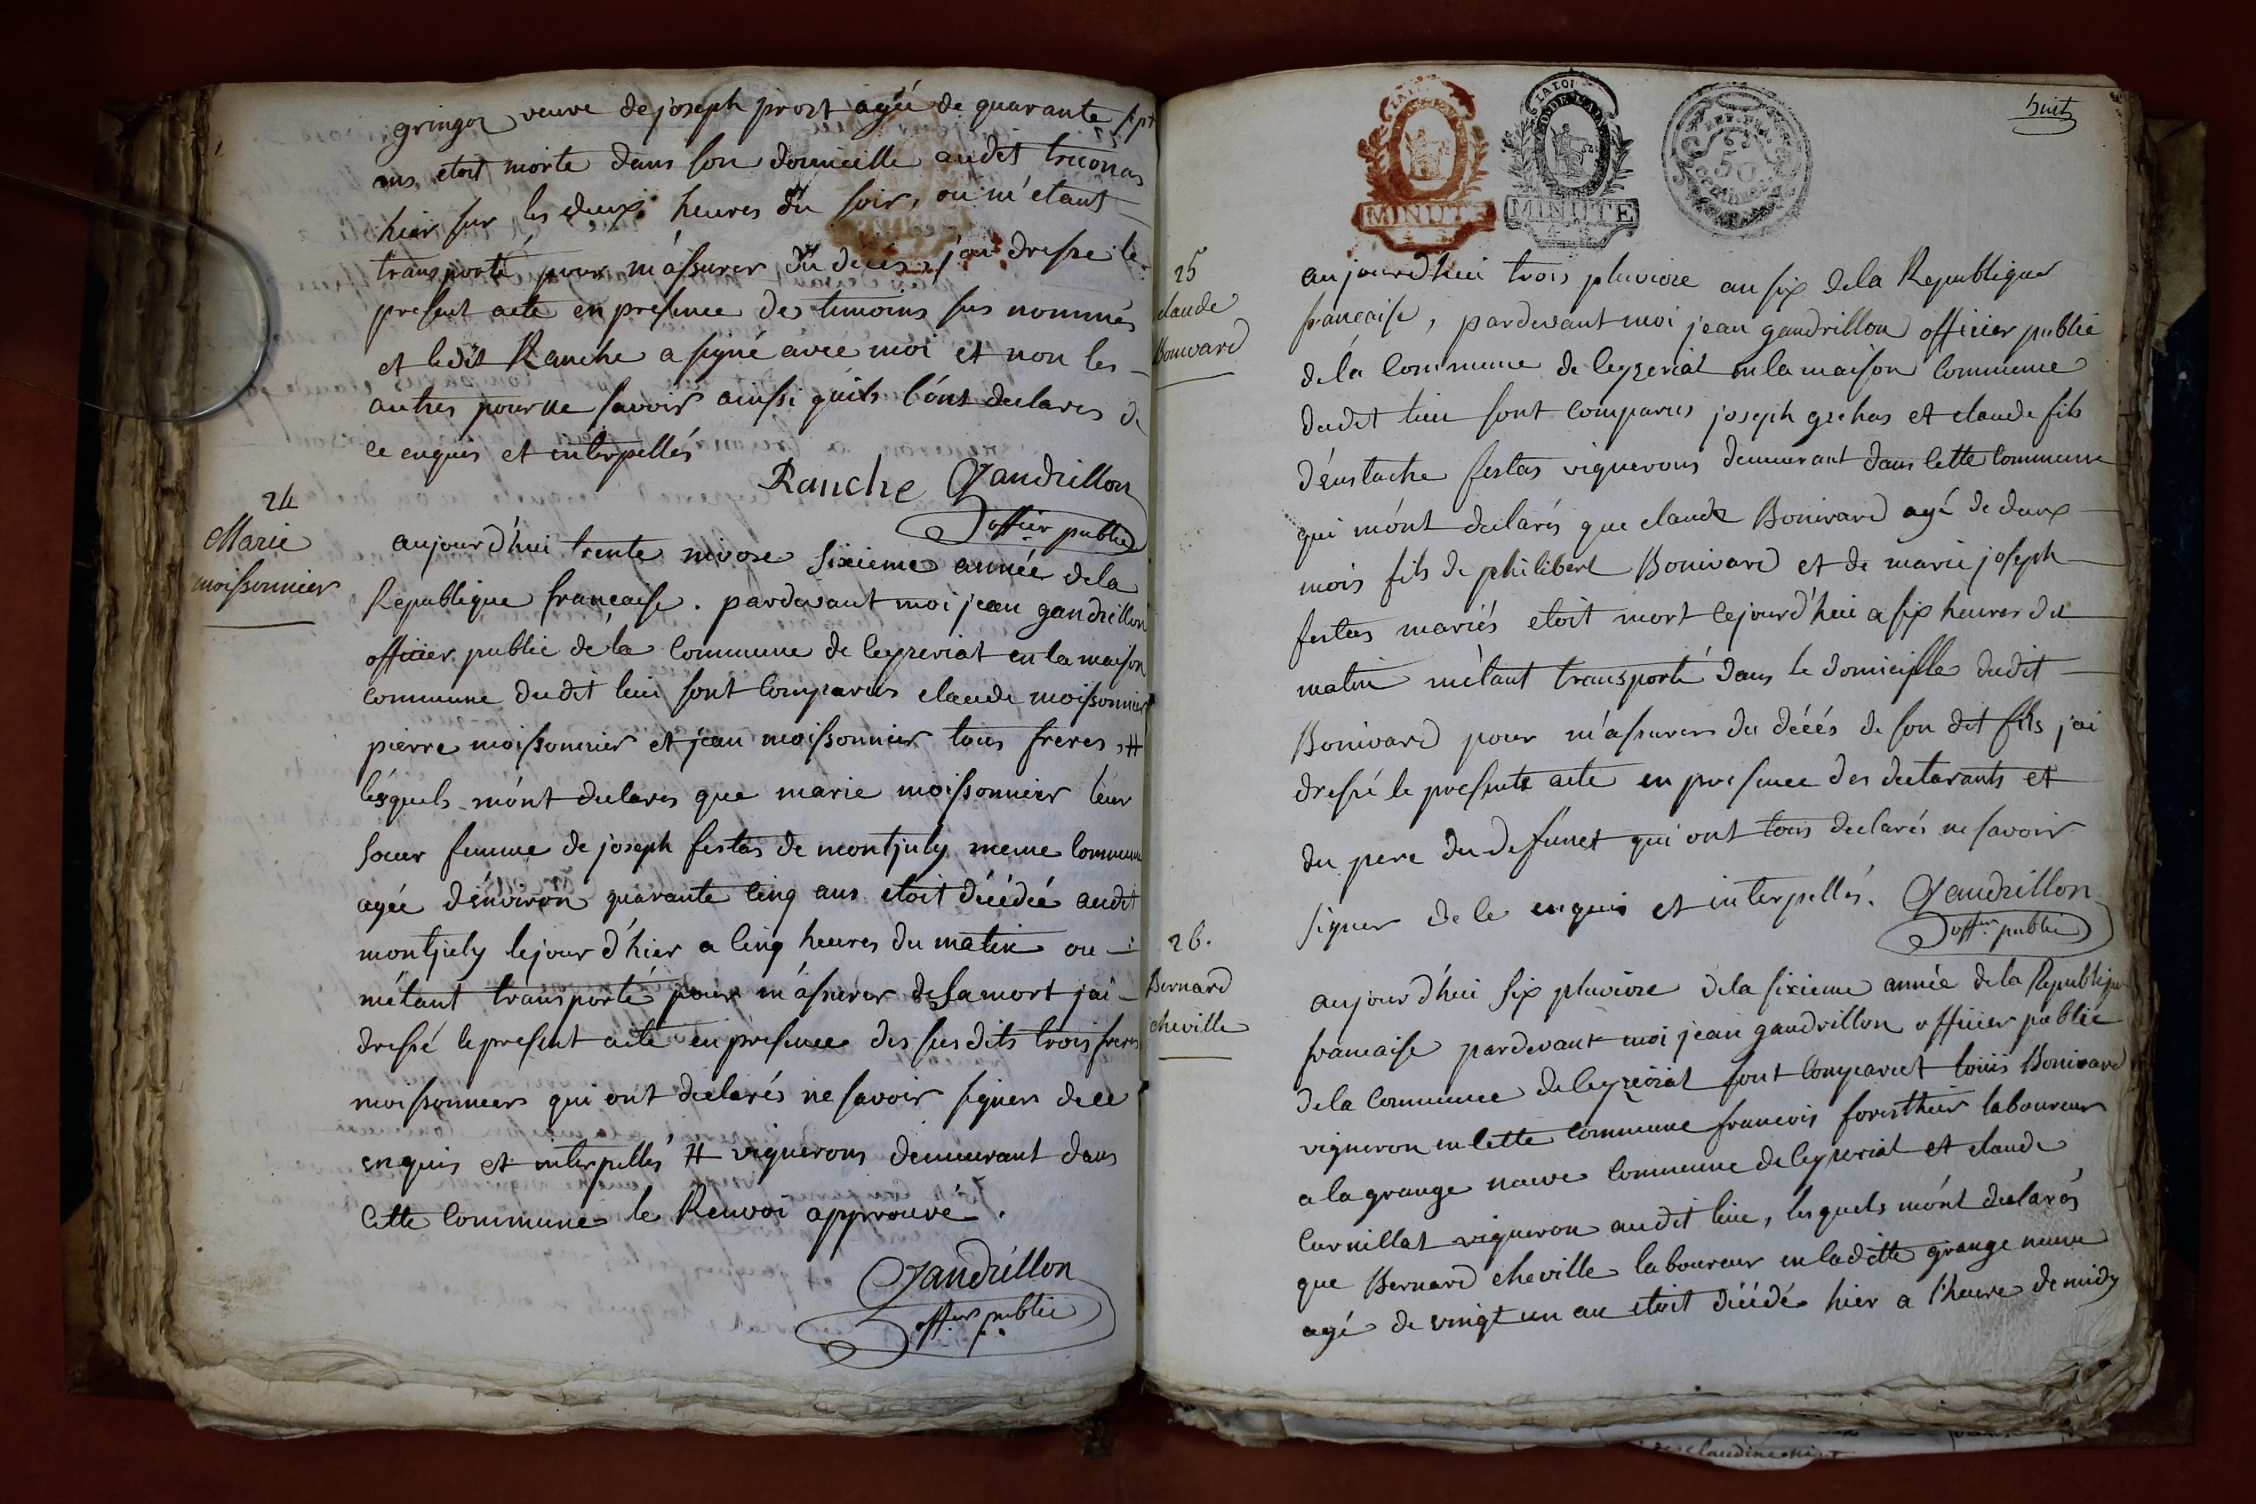 gringoz veuve de joseph prost agée de quarante sept
ans, etoit morte dans son domicille audit treconas
hier sur les deux heures du soir, ou m'etant
transporté pour m'assurer du décés, j'ai dressé le
present acte en presence des temoins sus nommés
et ledit Ranche a signé avec moi et non les
autres pour ne savoir ainsi qu'ils l'ont declarés de
ce enquis et interpellés
Ranche Gandrillon
officier public
24
Marie
moissonnier
aujourd'hui trente nivose sixieme année de la
Republique francaise. pardevant moi jean gandrillon
officier public de la commune de ceyzeriat en la maison
commune dudit lieu sont comparus claude moissonnier
pierre moissonnier et jean moissonnier tous freres, #
lesquels m'ont declarés que marie moissonnier leur
soeur femme de joseph festas de montjuly meme commune
agée d'énviron quarante cinq ans etoit décédée audit
montjuly le jour d'hier a cinq heures du matin ou
m'étant transporté pour m'assurer de sa mort j'ai
dressé le present acte en presence des susdits trois freres
moissonniers qui ont declarés ne savoir signer de ce
enquis et interpellés # vignerons demeurant dans
cette commune le Renvoi approuvé.
Gandrillon
offier public
huit
LA LOI
MINUTE
LA LOI
MINUTE
REP. FRA.
50
25
claude
Bonivard
aujourd'hui trois pluviose an six de la Republique
francaise, pardevant moi jean gandrillon officier public
de la commune de ceyzeriat en la maison commune
dudit lieu sont comparus joseph grehas et claude fils
d'éustache festas vignerons demeurant dans cette commune
qui m'ont declarés que claude Bonivard agé de deux
mois fils de philibert Bonivard et de marie joseph
festas mariés etoit mort cejourd'hui a six heures du
matin m'étant transporté dans le domicille dudit
Bonivard pour m'assurer du décés de son dit fils j'ai
dressé le present acte en presence des declarants et
du pere du defunct qui ont tous declarés ne savoir
signer de ce enquis et interpellés. Gandrillon
offier public
26.
Bernard
cheville
aujourd'hui six pluviose de la sixieme année de la Republique
francaise pardevant moi jean gandrillon officier public
de la commune de ceyzeriat sont comparut louis Bonivard
vigneron en cette commune francois foresthier laboureur
a la grange neuve commune de ceyzeriat et claude
curnillat vigneron audit lieu, lesquels m'ont declarés
que Bernard cheville laboureur en ladite grange neuve
agé de vingt un an etoit décédé hier a l'heure de midy